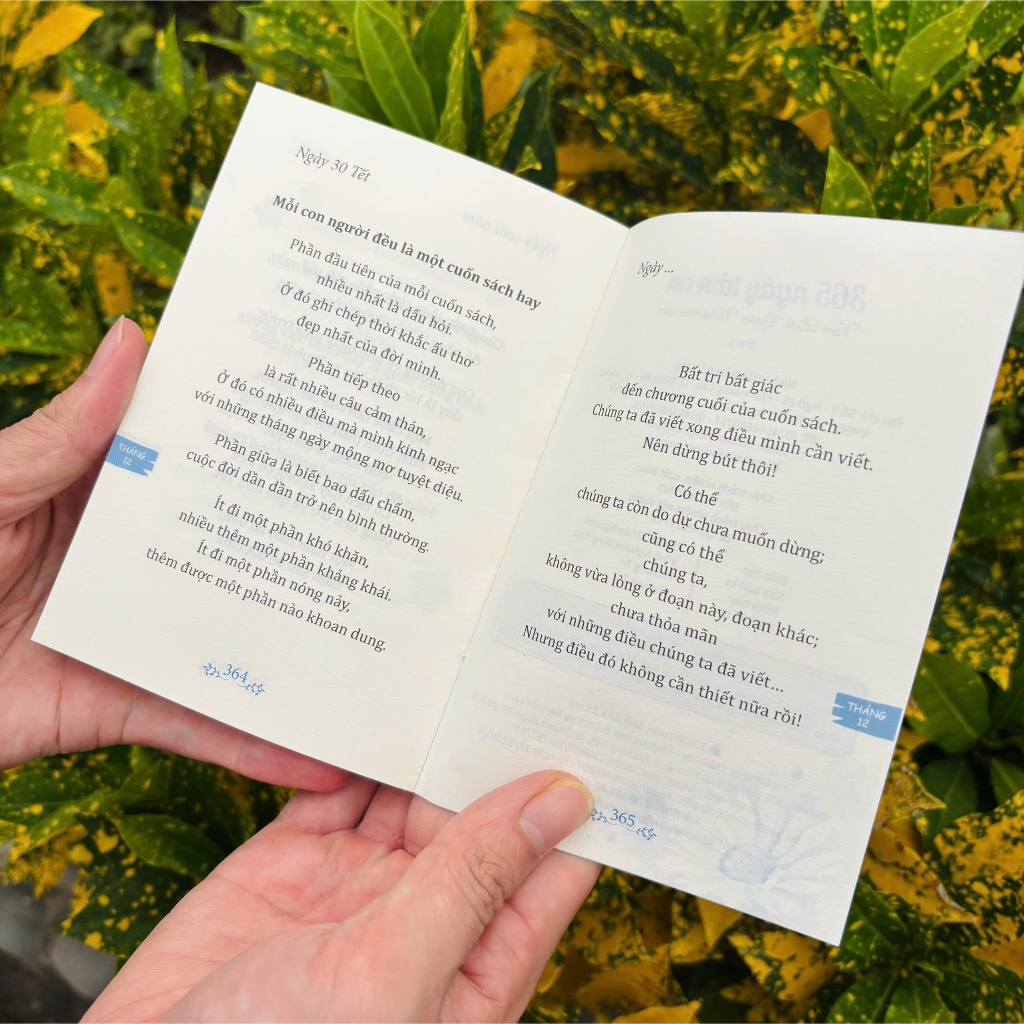 Ngày 30 Tết
Mỗi con người đều là một cuốn sách hay
Phần đầu tiên của mỗi cuốn sách,
nhiều nhất là dấu hỏi.
Ở đó ghi chép thời khắc ấu thơ
đẹp nhất của đời mình.
Phần tiếp theo
là rất nhiều câu cảm thán,
Ở đó có nhiều điều mà mình kinh ngạc
với những tháng ngày mộng mơ tuyệt diệu.
Phần giữa là biết bao dấu chấm,
cuộc đời dần dần trở nên bình thường.
Ít đi một phần khó khăn,
nhiều thêm một phần khảng khái.
Ít đi một phần nóng nảy,
thêm được một phần nào khoan dung.
THÁNG
12
364
Ngày ...
365 ngày tâm an
Bất tri bất giác
đến chương cuối của cuốn sách.
Chúng ta đã viết xong điều mình cần viết.
Nên dừng bút thôi!
Có thể
chúng ta còn do dự chưa muốn dừng;
cũng có thể
chúng ta,
không vừa lòng ở đoạn này, đoạn khác;
chưa thỏa mãn
với những điều chúng ta đã viết...
Nhưng điều đó không cần thiết nữa rồi!
THÁNG
12
365